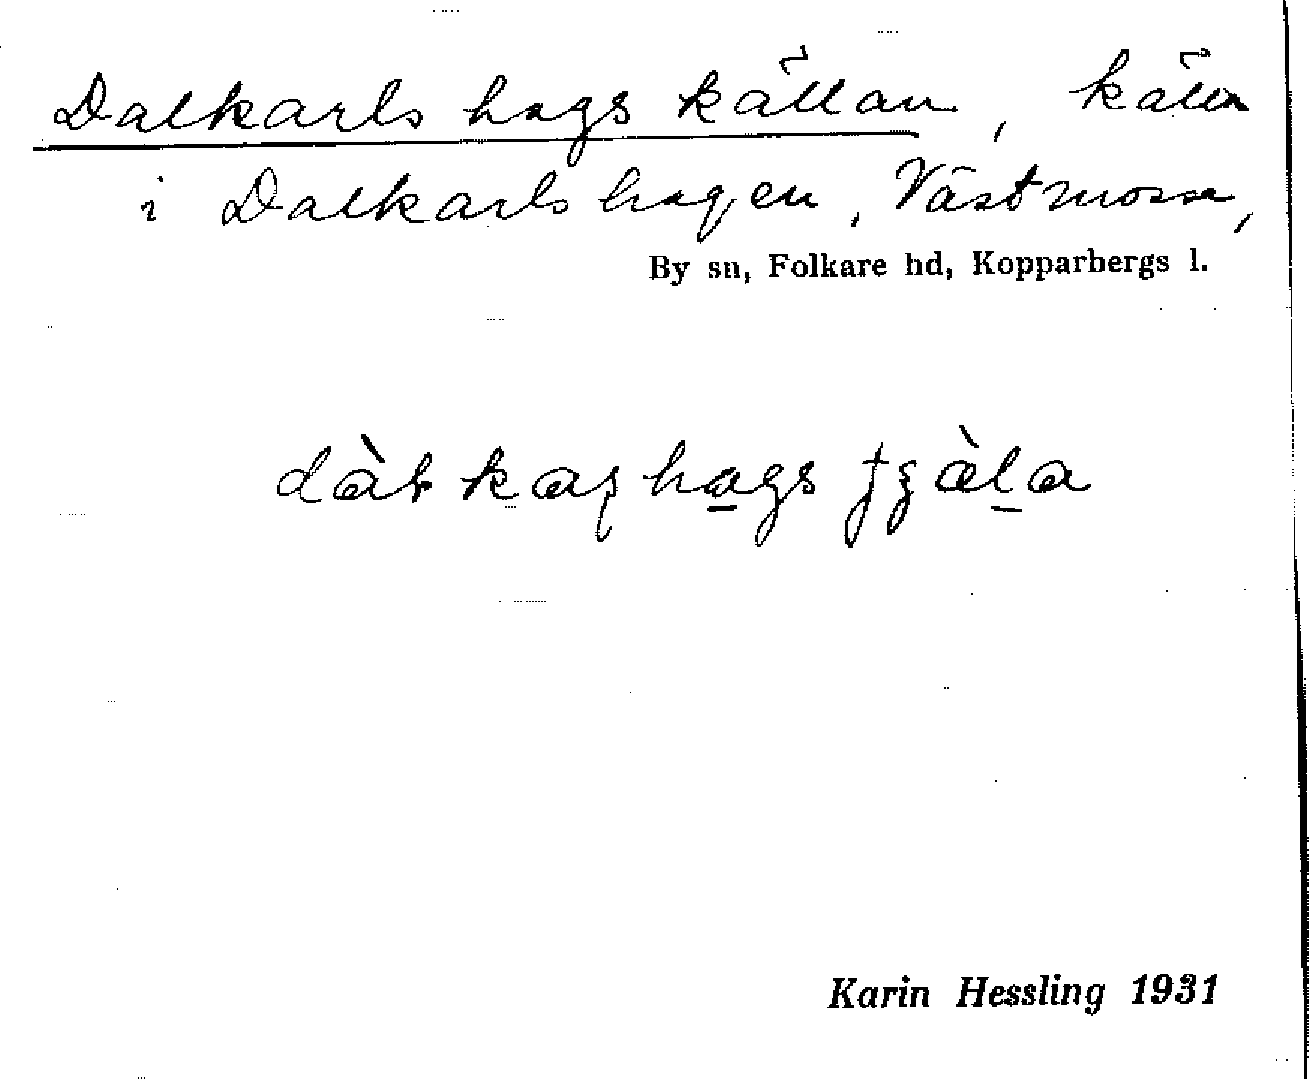 Dalkarlshagskällan, källa
i Dalkarlshagen, Västmossa,
By sn, Folkare hd, Kopparbergs l.
Karin Hessling 1931